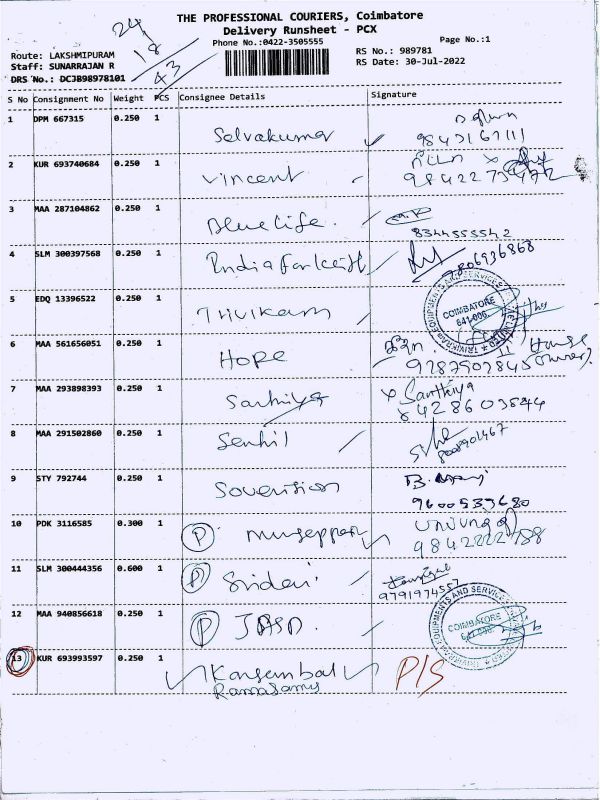 THE PROFESSIONAL COURIERS, Coimbatore
Delivery Runsheet - PCX
Phone No.:0422-3505555
Page No.:1
Route: LAKSHMIPURAM
Staff: SUNARRAJAN R
DRS No.: DCJB98978101
RS No.: 989781
RS Date: 30-Jul-2022
24
18
43
S No Consignment No Weight PCS Consignee Details Signature
1 DPM 667315 0.250 1 Selvakumar
9843167111
2 KUR 693740684 0.250 1 Vincent
3 MAA 287104862 0.250 1 Bluelife
8344555542
4 SLM 300397568 0.250 1
5 EDQ 13396522 0.250 1 Trivikam
TRIVIKRAM EQUIPMENTS AND SERVICES LIMITED
COIMBATORE
641 006.
6 MAA 561656051 0.250 1 Hope
House
9287502845 Owner)
7 MAA 293898393 0.250 1 Sathiya Santhiya
8 MAA 291502860 0.250 1 Senhil
9 STY 792744 0.250 1
9600533680
10 PDK 3116585 0.300 1 P
11 SLM 300444356 0.600 1 P Sridevi
9791974557
12 MAA 940856618 0.250 1 P
EQUIPMENTS AND SERVICES
COIMBATORE
641 006
13 KUR 693993597 0.250 1
Ramasamy
P/S